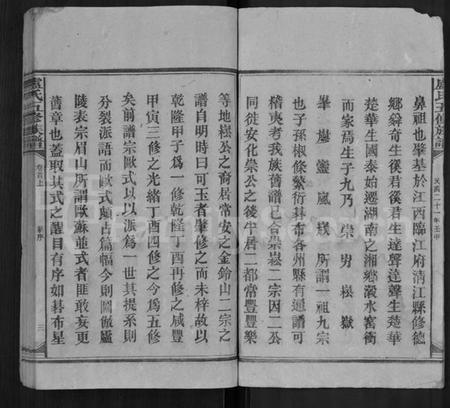 盧氏五修族譜
民國三十一年壬申
鼻祖也肇基於江西臨江府清江縣修德
鄉舜奇生後君後君生達聲達聲生楚華
楚華生國泰始遷湖南之湘鄉溵水窰衝
而家焉生子九乃崇男崧嶽
峯嵐嵿所謂一祖九宗
也子孫椒條繁衍碁布各州縣有通譜可
稽夷考我族舊譜已合崇崧二宗因二公
同徙安化崇公之後半居二都常豐豐樂
等地崧公之裔居常安之金鈴山二宗之
譜自明時曰可玉者肇修之而未梓故以
乾隆甲子爲一修乾隆丁酉再修之咸豐
甲寅三修之光緒丁酉四修之今爲五修
矣前譜宗歐式以以派爲一世其提系則
分裂派語而歐式頗占篇幅今則圖倣盧
陵表宗眉山所謂歐蘇並式者匪敢妄更
舊章也蓋取其式之醒目有序如碁布星
盧氏五修族譜
卷首上
新序
三